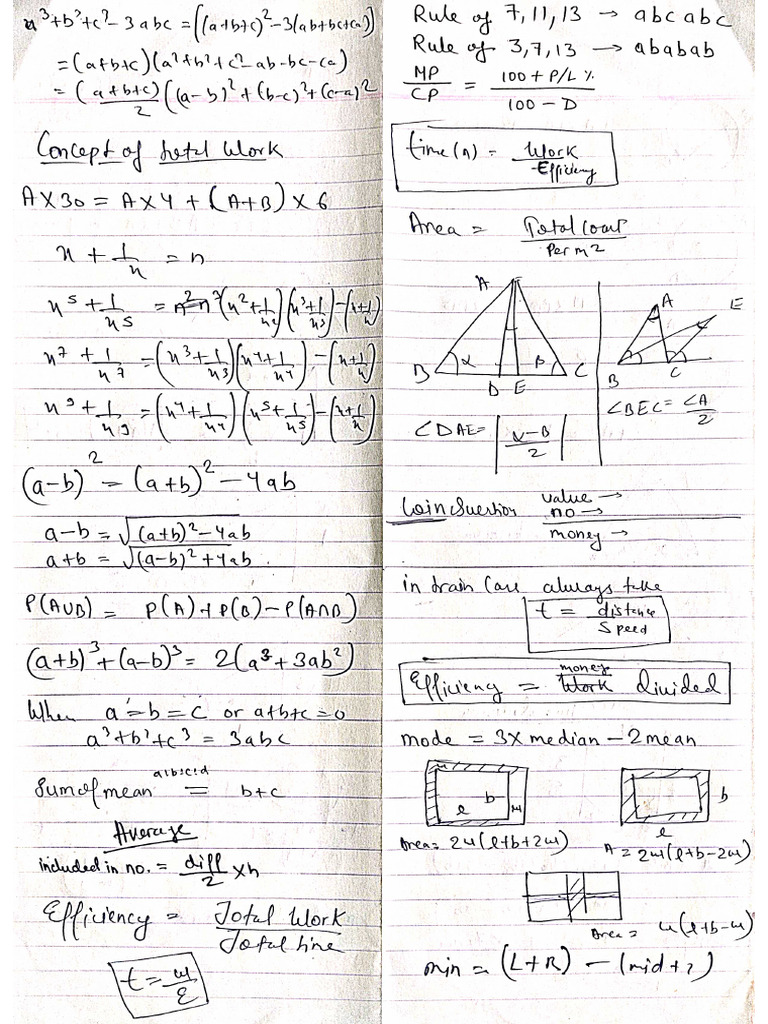 a³+b³+c³-3abc = ((a+b+c)²-3(ab+bc+ca))
= (a+b+c)(a²+b²+c²-ab-bc-ca)
= (a+b+c)/2 ((a-b)²+(b-c)²+(c-a)²
Concept of total Work
A×30 = A×4 + (A+B)×6
x + 1/x = n
x⁵ + 1/x⁵ = (x²+1/x²)(x³+1/x³)-(x+1/x)
x⁷ + 1/x⁷ = (x³+1/x³)(x⁴+1/x⁴)-(x+1/x)
x⁹ + 1/x⁹ = (x⁴+1/x⁴)(x⁵+1/x⁵)-(x+1/x)
(a-b)² = (a+b)² - 4ab
a-b = √(a+b)²-4ab
a+b = √(a-b)²+4ab
P(A∪B) = P(A)+P(B)-P(A∩B)
(a+b)³+(a-b)³ = 2(a³+3ab²)
When a=b=c or a+b+c=0
a³+b³+c³ = 3abc
Sum of mean = b+c
Average
included in no. = diff/2 × n
Efficiency = Total Work / Total time
t = w/E
Rule of 7,11,13 → abcabc
Rule of 3,7,13 → ababab
MP/CP = 100+P/L% / 100-D
time(n) = Work / Efficiency
Area = Total cost / Per m2
A
B α D E β C
∠DAE = |α-β / 2|
A E
B C
∠BEC = ∠A/2
Coin Question value →
no →
money →
in train Case always take
t = distance / Speed
money
Efficiency = Work divided
mode = 3×median - 2mean
w
b
l w
Area = 2w(l+b+2w)
b
l
A = 2w(l+b-2w)
Area = w(l+b-w)
min = (L+R) - (mid+